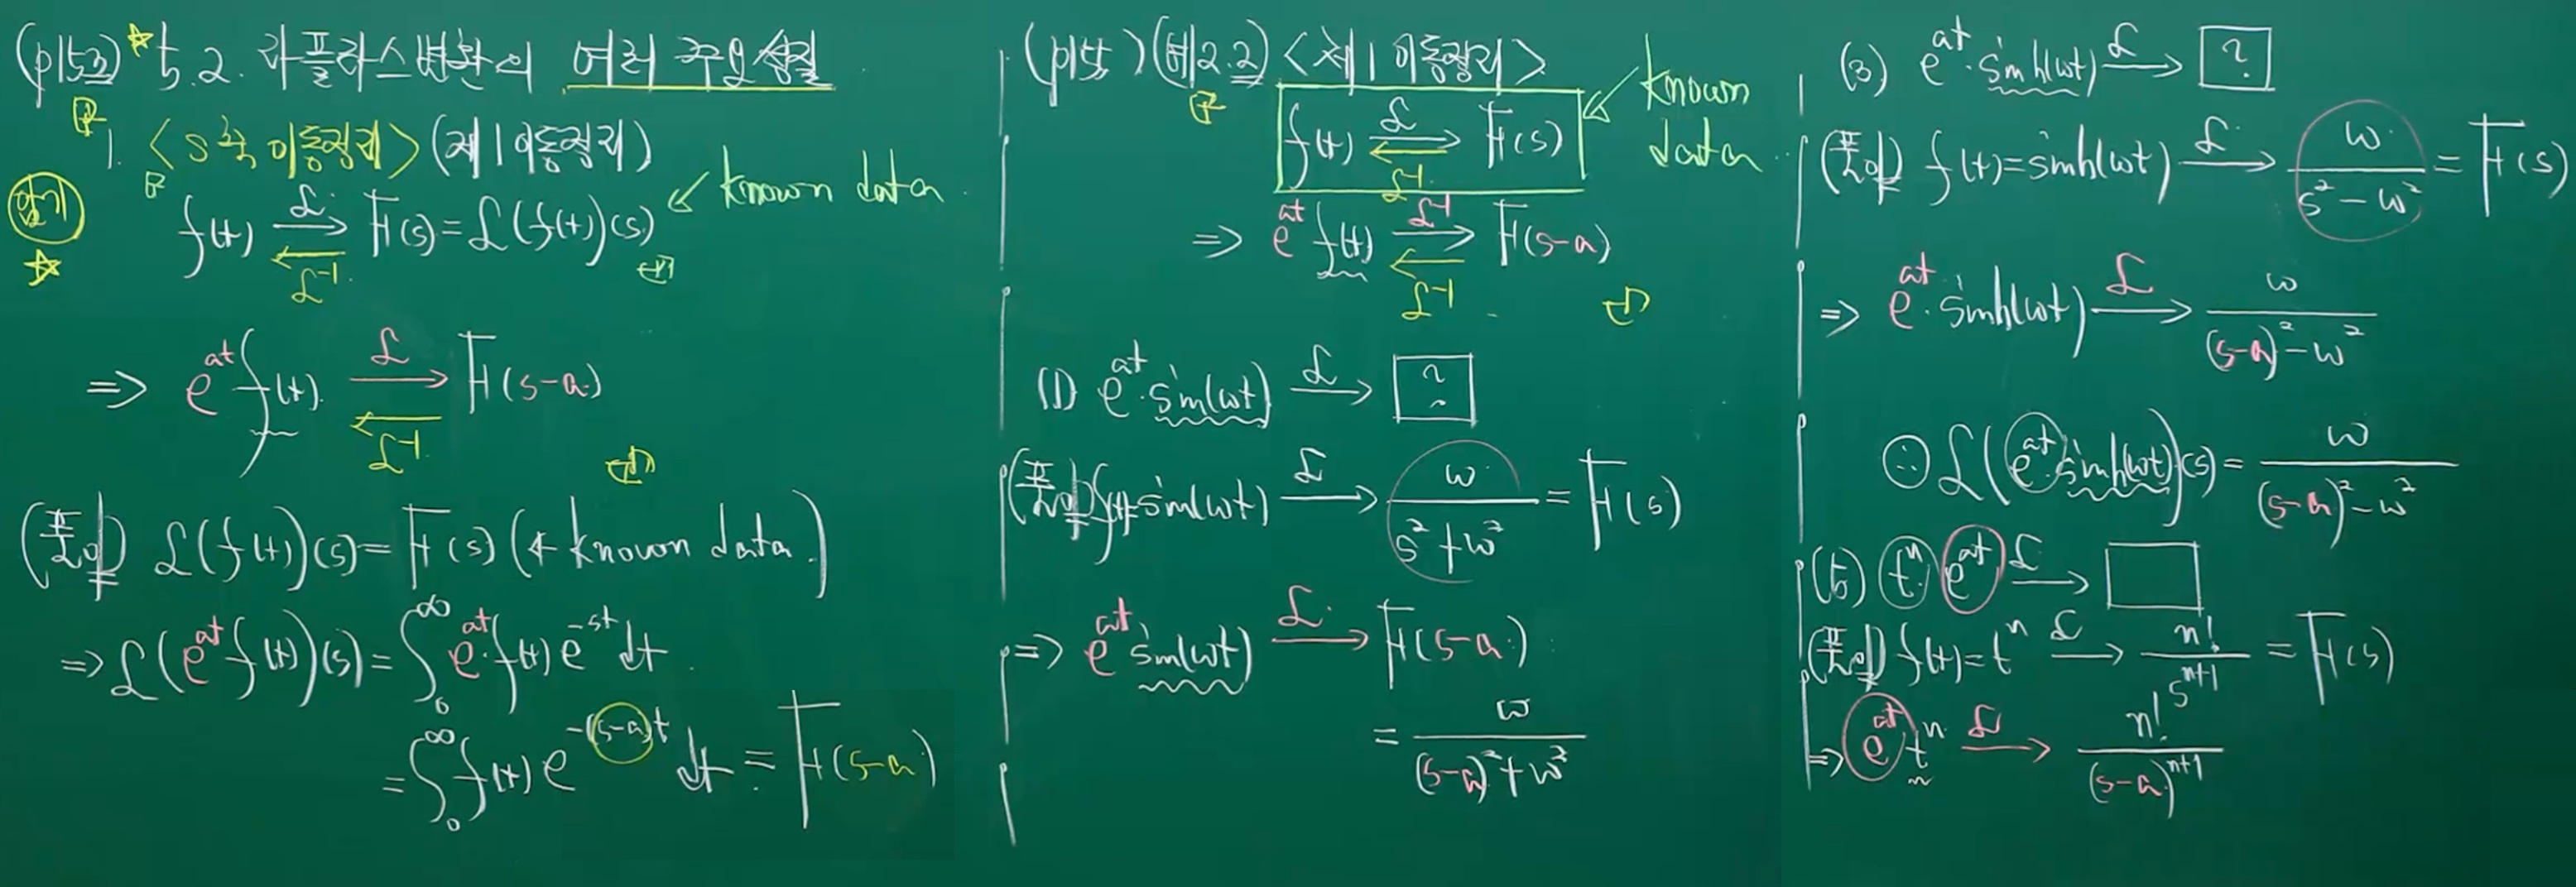 (p153) ☆ 5.2. 라플라스변환의 여러 주요성질
1. <s축 이동정리> (제1이동정리)
암기 ☆
f(t) ⇄ F(s) = ℒ(f(t))(s) ↙ known data
ℒ
ℒ⁻¹
⇒ e^{at} f(t) ⇄ F(s-a)
ℒ
ℒ⁻¹
(풀이) ℒ(f(t))(s) = F(s) (← known data.)
⇒ ℒ(e^{at} f(t))(s) = ∫₀^∞ e^{at}·f(t) e^{-st} dt
= ∫₀^∞ f(t) e^{-(s-a)t} dt = F(s-a)
(p155) (예2.2) <제1이동정리>
f(t) ⇄ F(s) ↙ known data
ℒ
ℒ⁻¹
⇒ e^{at} f(t) ⇄ F(s-a)
ℒ⁻¹
ℒ⁻¹
(1) e^{at}·sin(ωt) →ℒ [?]
(풀이) f(t)=sin(ωt) →ℒ ω/(s²+ω²) = F(s)
⇒ e^{at} sin(ωt) →ℒ F(s-a)
= ω/((s-a)²+ω²)
(3) e^{at}·sinh(ωt) →ℒ [?]
(풀이) f(t)=sinh(ωt) →ℒ ω/(s²-ω²) = F(s)
⇒ e^{at}·sinh(ωt) →ℒ ω/((s-a)²-ω²)
∴ ℒ(e^{at}·sinh(ωt))(s) = ω/((s-a)²-ω²)
(5) tⁿ e^{at} →ℒ □
(풀이) f(t)=tⁿ →ℒ n!/s^{n+1} = F(s)
⇒ e^{at} tⁿ →ℒ n!/(s-a)^{n+1}